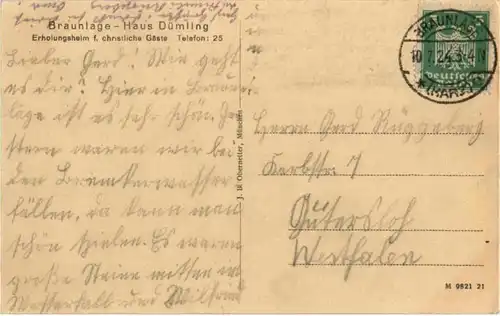 Braunlage - Haus Dümling
Erholungsheim f. christliche Gäste Telefon: 25
Lieber Gerd! Wie geht
es dir? Hier in Braun-
lage ist es sehr schön. Ge-
stern waren wir bei
den Bremkerwasser-
fällen, da kann man
schön spielen. Es waren
große Steine mitten im
Wasserfall und
J. B. Obernetter, München
BRAUNLAGE
(HARZ)
5
Deutsches
Herrn Gerd Rüggeberg
Kerbstr. 7
Gütersloh
Westfalen
M 9821 21